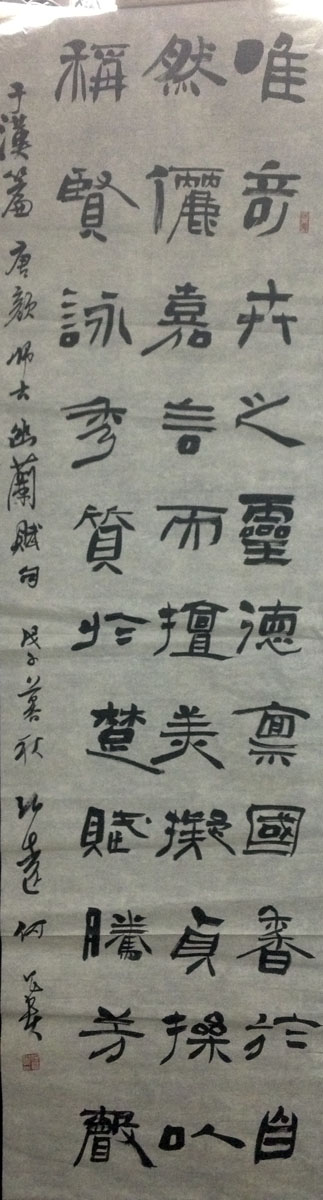 唯奇卉之靈德稟國香於自
然儷嘉言而擅美擬貞操以
稱賢詠秀質於楚賦騰芳聲
于漢篇 唐顏師古幽蘭賦句 戊子暮秋 何